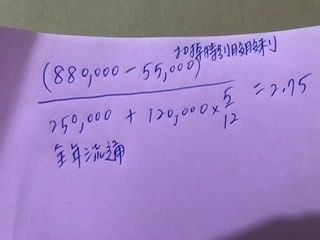 扣掉特別股股利
(880,000 - 55,000)
250,000 + 120,000 × 5/12 = 2.75
全年流通